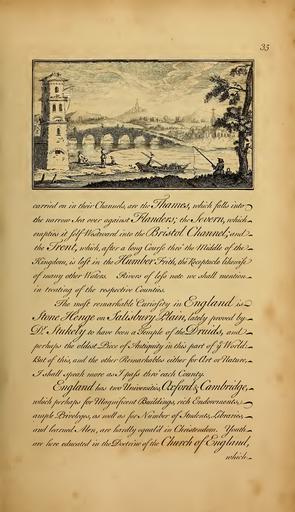 35
carried on in their Channels, are the Thames, which falls into
the narrow Sea over against Flanders; the Severn, which
empties it self Westward into the Bristol Channel; and
the Trent, which, after a long Course thro' the Middle of the
Kingdom, is lost in the Humber Frith, the Receptacle likewise
of many other Waters. Rivers of less note we shall mention
in treating of the respective Counties.
The most remarkable Curiosity in England is
Stone Henge on Salisbury Plain, lately proved by
Dr. Stukely to have been a Temple of the Druids, and
perhaps the oldest Piece of Antiquity in this part of ye World.
But of this, and the other Remarkables either for Art or Nature,
I shall speak more as I pass thro' each County.
England has two Universities, Oxford & Cambridge,
which perhaps for Magnificent Buildings, rich Endowments,
ample Privileges, as well as for Number of Students, Libraries,
and learned Men, are hardly equal'd in Christendom. Youth
are here educated in the Doctrine of the Church of England,
which